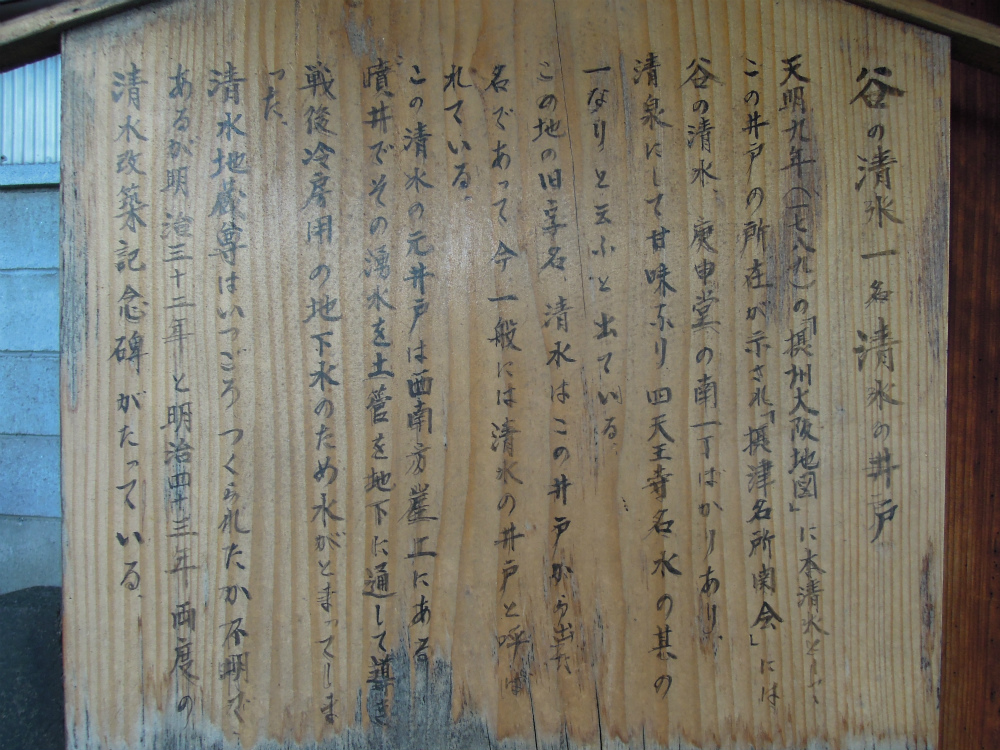 谷の清水一名清水の井戸
天明九年(一七八九)の「摂州大阪地図」に本清水として
この井戸の所在が示され「摂津名所図会」には
谷の清水、庚申堂の南一丁ばかりあり、
清泉にして甘味なり 四天王寺名水の其の
一なりと云ふと出ている。
この地の旧字名、清水はこの井戸から出た
名であって今一般には清水の井戸と呼ば
れている。
この清水の元井戸は西南方崖上にある
噴井でその湧水を土管を地下に通して導き
戦後冷房用の地下水のため水がとまってしま
った、
清水地蔵尊はいつごろつくられたか不明で、
あるが明治三十二年と明治四十三年両度の
清水改築記念碑がたっている、